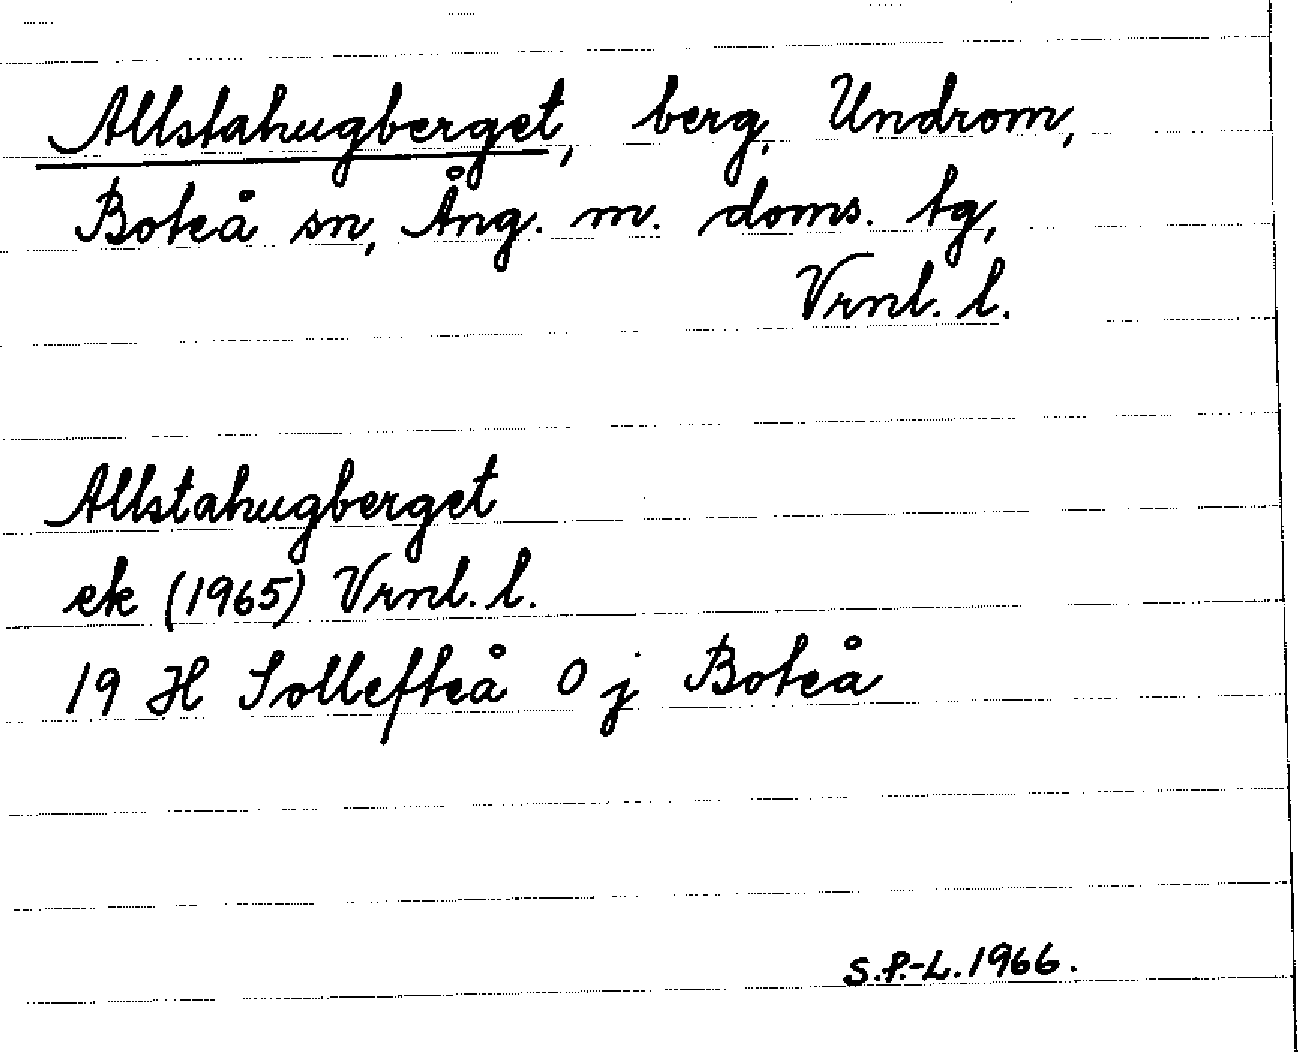 Allstahugberget, berg, Undrom,
Boteå sn, Ång. m. doms. tg,
Vrnl. l.
Allstahugberget
ek (1965) Vrnl. l.
19 H Sollefteå O j Boteå
S.P.-L. 1966.